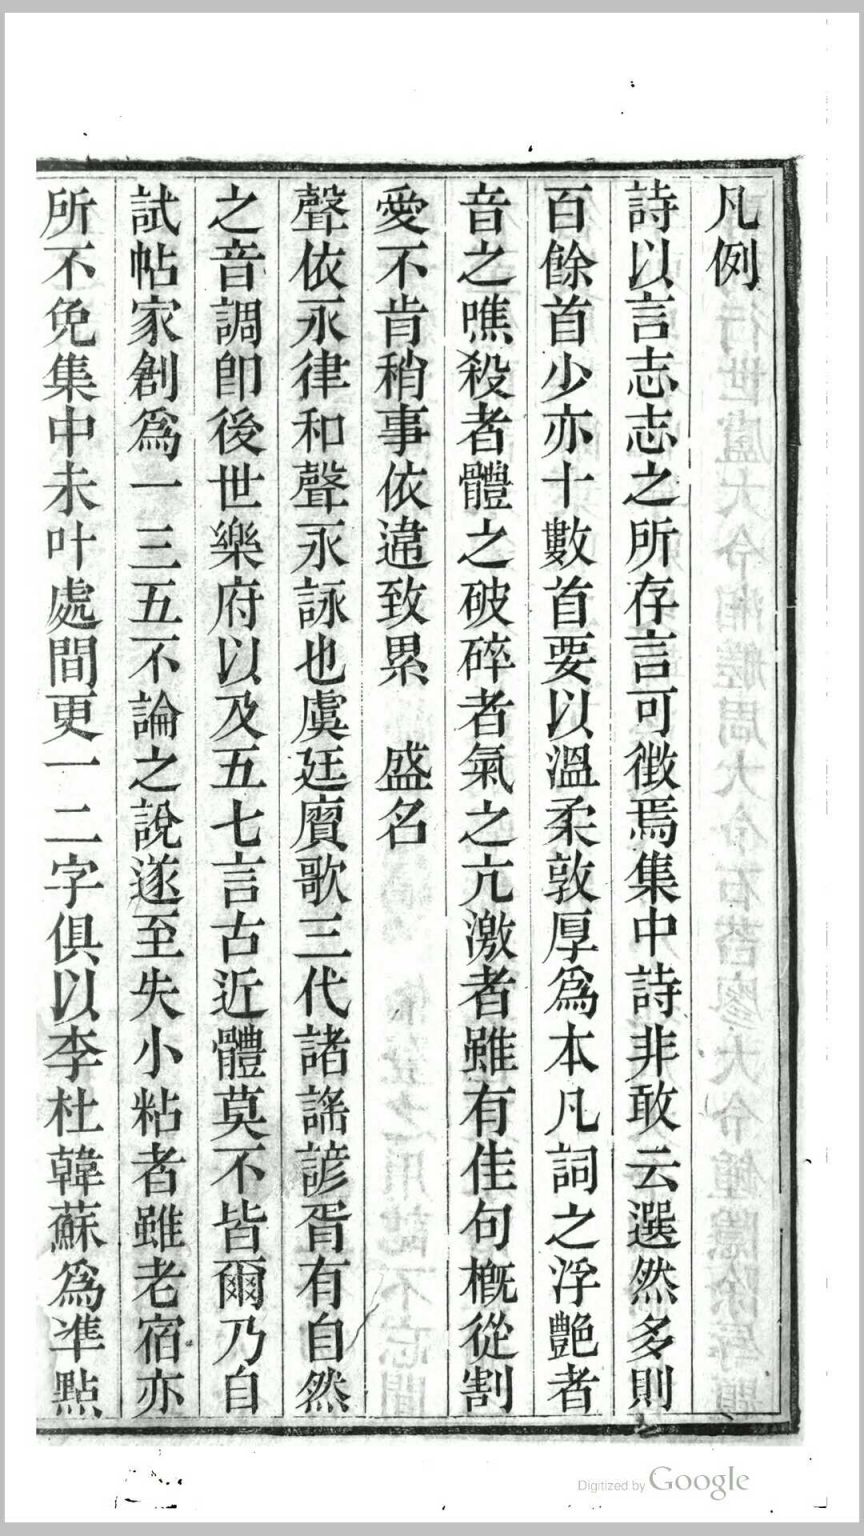 凡例
詩以言志志之所存言可徵焉集中詩非敢云選然多則
百餘首少亦十數首要以溫柔敦厚爲本凡詞之浮艷者
音之噍殺者體之破碎者氣之亢激者雖有佳句槪從割
愛不肯稍事依違致累　盛名
聲依永律和聲永詠也虞廷賡歌三代諸謠諺胥有自然
之音調卽後世樂府以及五七言古近體莫不皆爾乃自
試帖家創爲一三五不論之說遂至失小粘者雖老宿亦
所不免集中未叶處間更一二字俱以李杜韓蘇爲準點
Digitized by Google